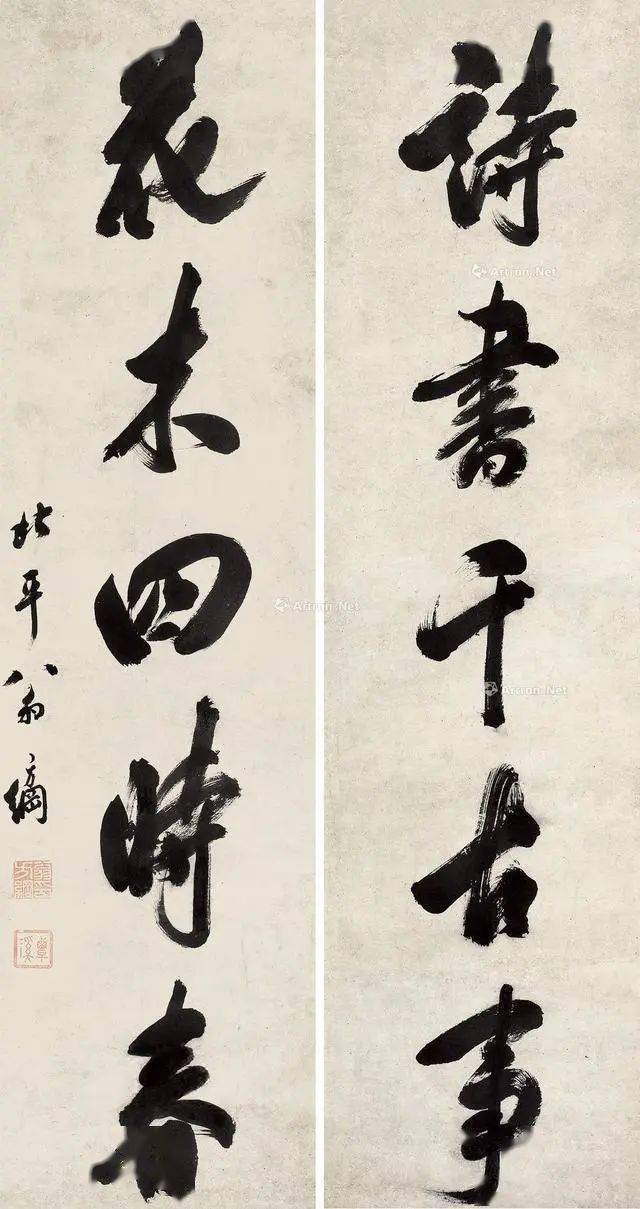 詩書千古事
花木四時春
北平翁方綱
覃溪
Artron.Net
Artron.Net
Artron.Net